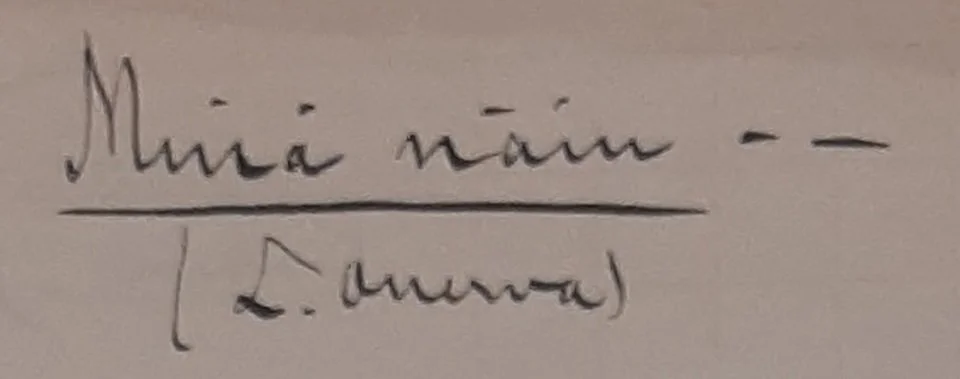 Minä näin - —
(L. Onerva)